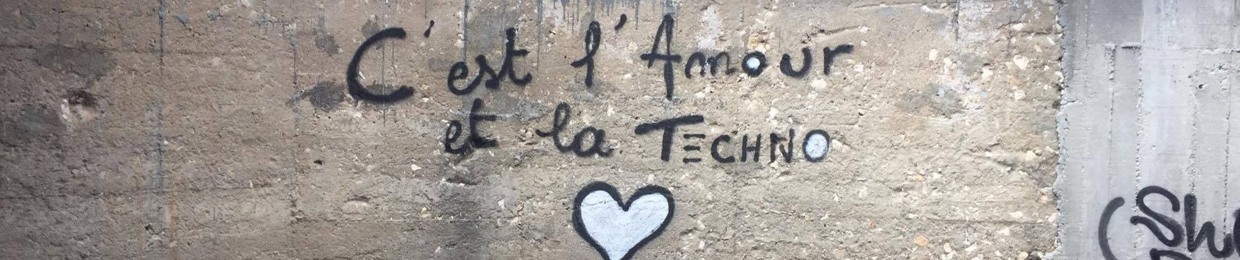 C'est l'Amour
et la TECHNO